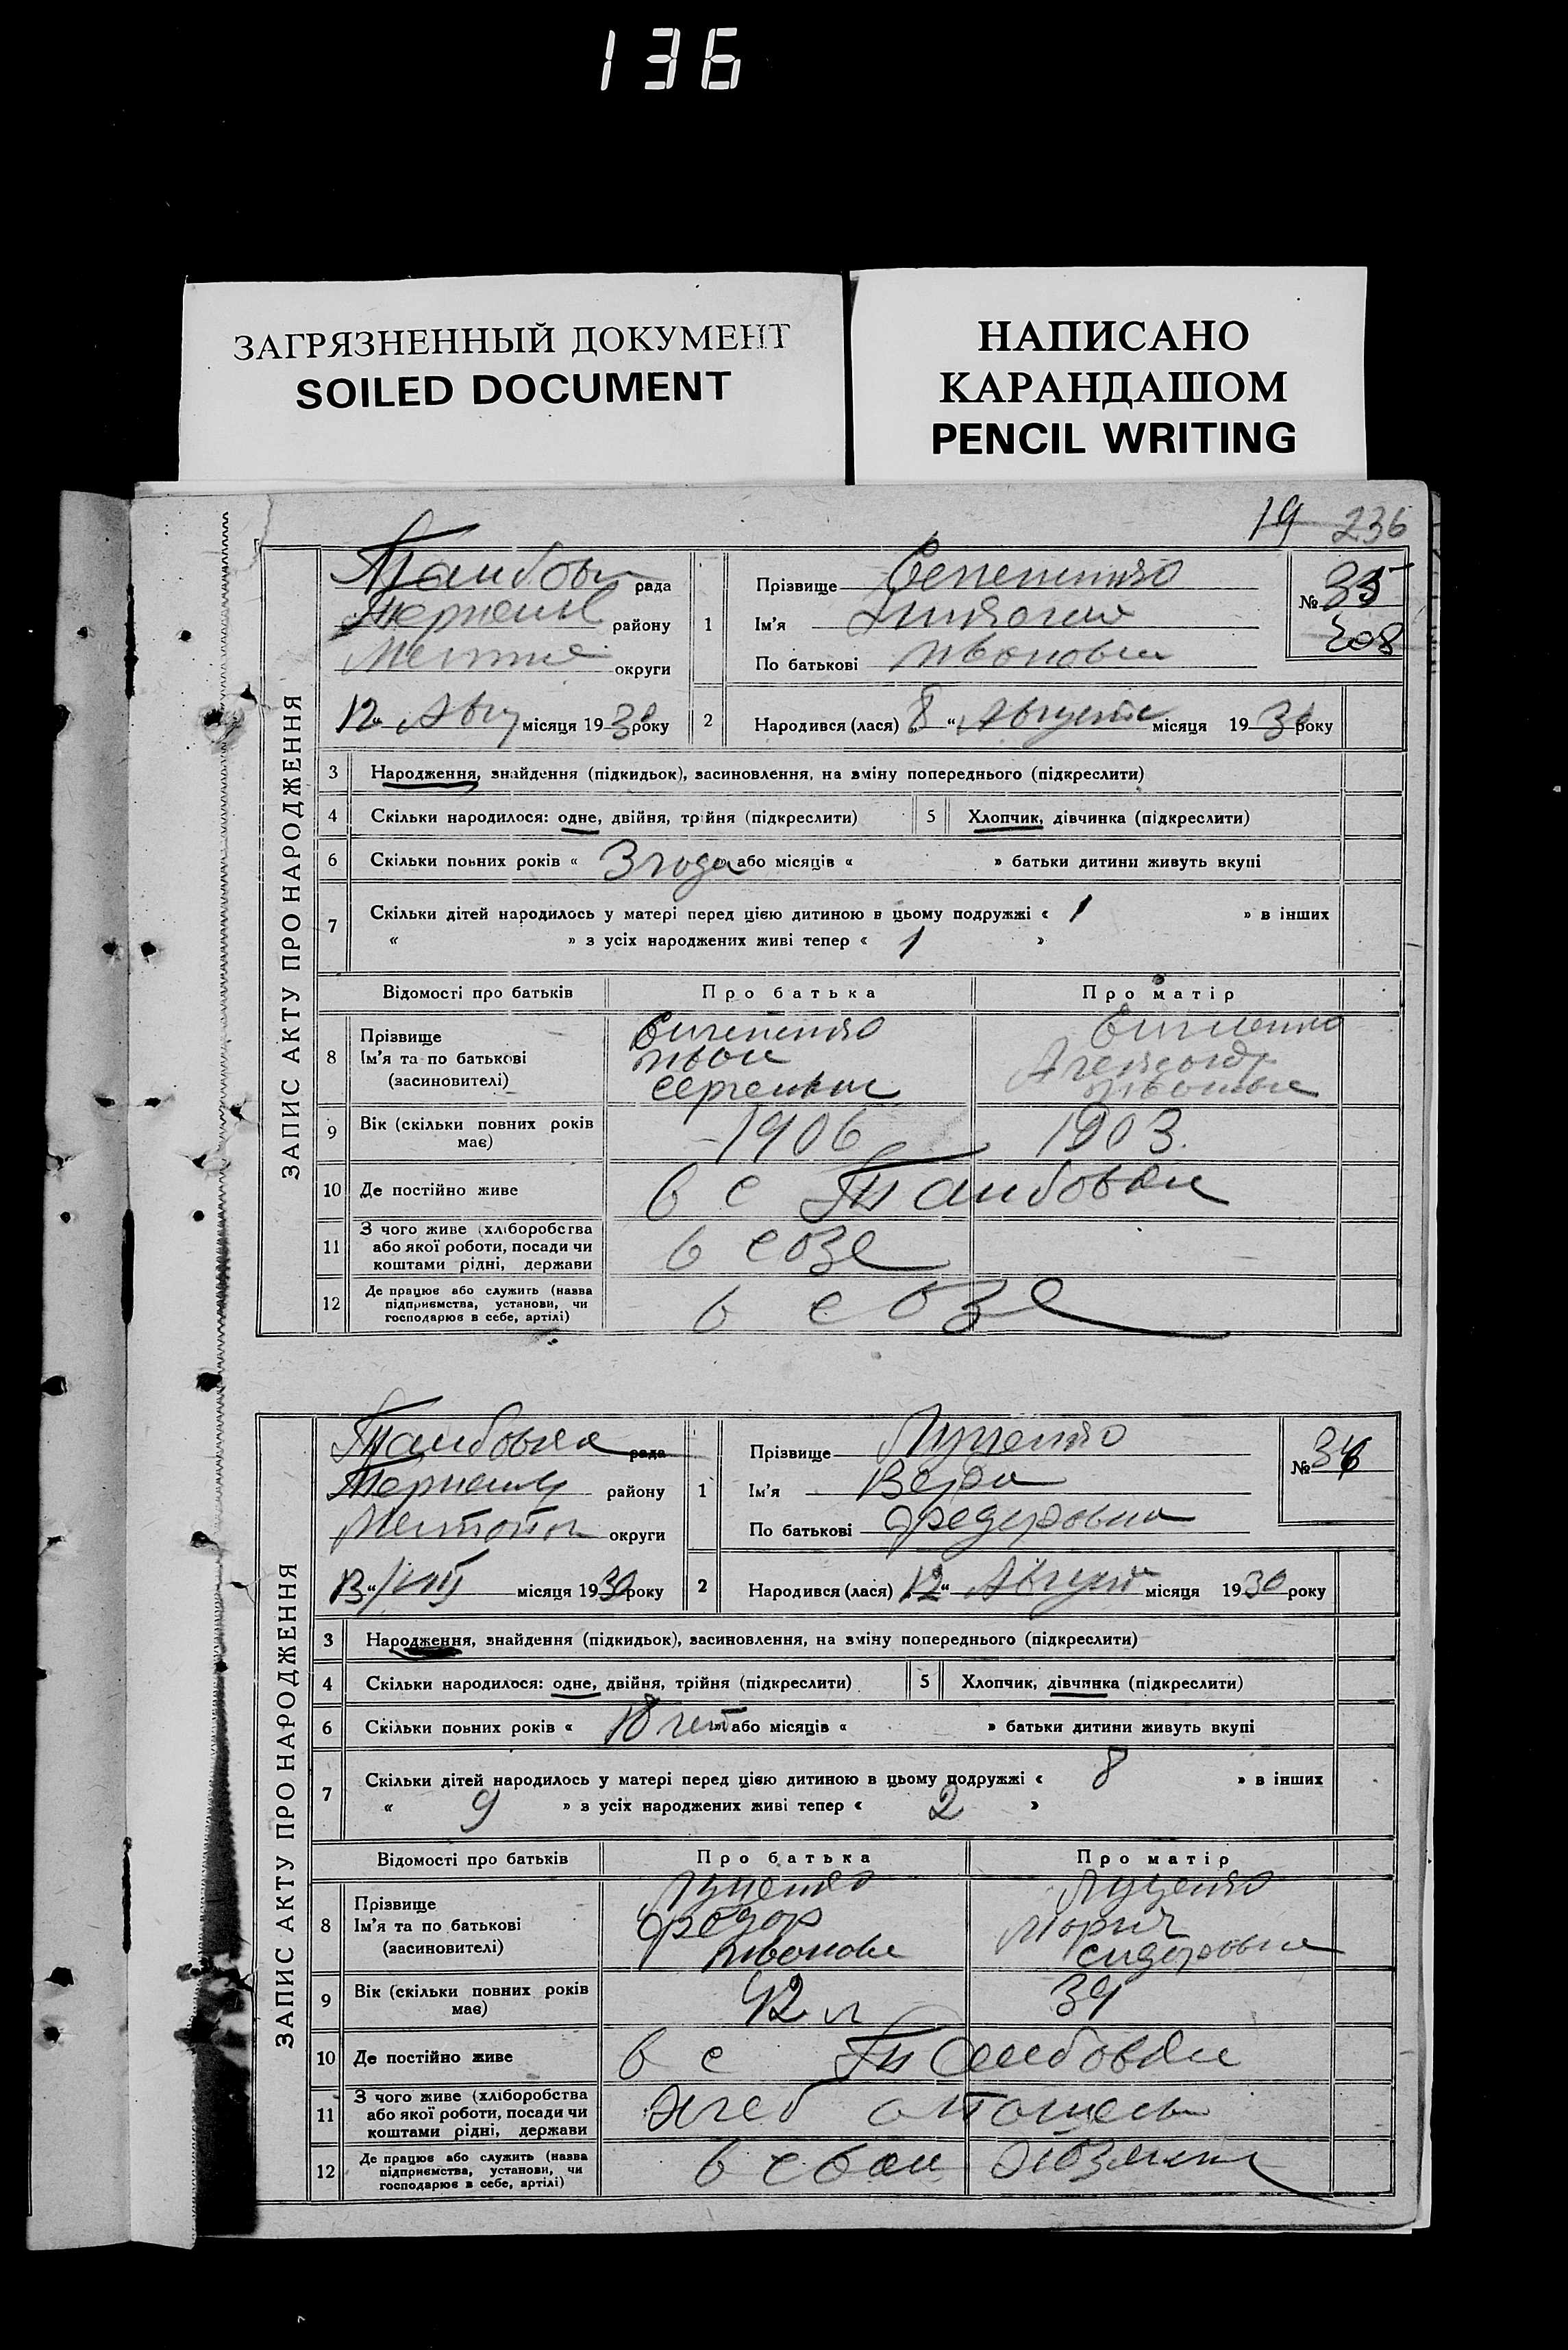 136
ЗАГРЯЗНЕННЫЙ ДОКУМЕНТ
SOILED DOCUMENT
НАПИСАНО
КАРАНДАШОМ
PENCIL WRITING
19 236
ЗАПИС АКТУ ПРО НАРОДЖЕННЯ
рада
району
округи
12 “ Авгу місяця 1930 року
1
Прізвище
Ім'я
По батькові Ивонови
№ 35
308
2
Народився (лася) 8 “ Августа місяця 1930 року
3 Народження, знайдення (підкидьок), засиновлення, на зміну попереднього (підкреслити)
4 Скільки народилося: одне, двійня, трійня (підкреслити)
5 Хлопчик, дівчинка (підкреслити)
6 Скільки повних років « 3 года » або місяців « » батьки дитини живуть вкупі
7 Скільки дітей народилось у матері перед цією дитиною в цьому подружжі « 1 » в інших
« » з усіх народжених живі тепер « 1 »
Відомості про батьків Про батька Про матір
8 Прізвище
Ім'я та по батькові
(засиновителі)
9 Вік (скільки повних років має) 1906 1903.
10 Де постійно живе в с Тамбовки
11 З чого живе (хліборобства
або якої роботи, посади чи
коштами рідні, держави
в созе
12 Де працює або служить (назва
підприємства, установи, чи
господарює в себе, артілі)
в созе
ЗАПИС АКТУ ПРО НАРОДЖЕННЯ
Тамбовка рада
району
округи
13 “ VIII місяця 1930 року
1
Прізвище Луценко
Ім'я Вера
По батькові Федоровна
№ 36
2
Народився (лася) 12 “ Августа місяця 1930 року
3 Народження, знайдення (підкидьок), засиновлення, на зміну попереднього (підкреслити)
4 Скільки народилося: одне, двійня, трійня (підкреслити)
5 Хлопчик, дівчинка (підкреслити)
6 Скільки повних років « 18 лет » або місяців « » батьки дитини живуть вкупі
7 Скільки дітей народилось у матері перед цією дитиною в цьому подружжі « 8 » в інших
« 9 » з усіх народжених живі тепер « 2 »
Відомості про батьків Про батька Про матір
8 Прізвище Луценко Луценко
Ім'я та по батькові Федор Мория
(засиновителі) Ивонови Сидоровна
9 Вік (скільки повних років має) 42 л 39
10 Де постійно живе в с Тамбовки
11 З чого живе (хліборобства
або якої роботи, посади чи
коштами рідні, держави
12 Де працює або служить (назва
підприємства, установи, чи
господарює в себе, артілі)